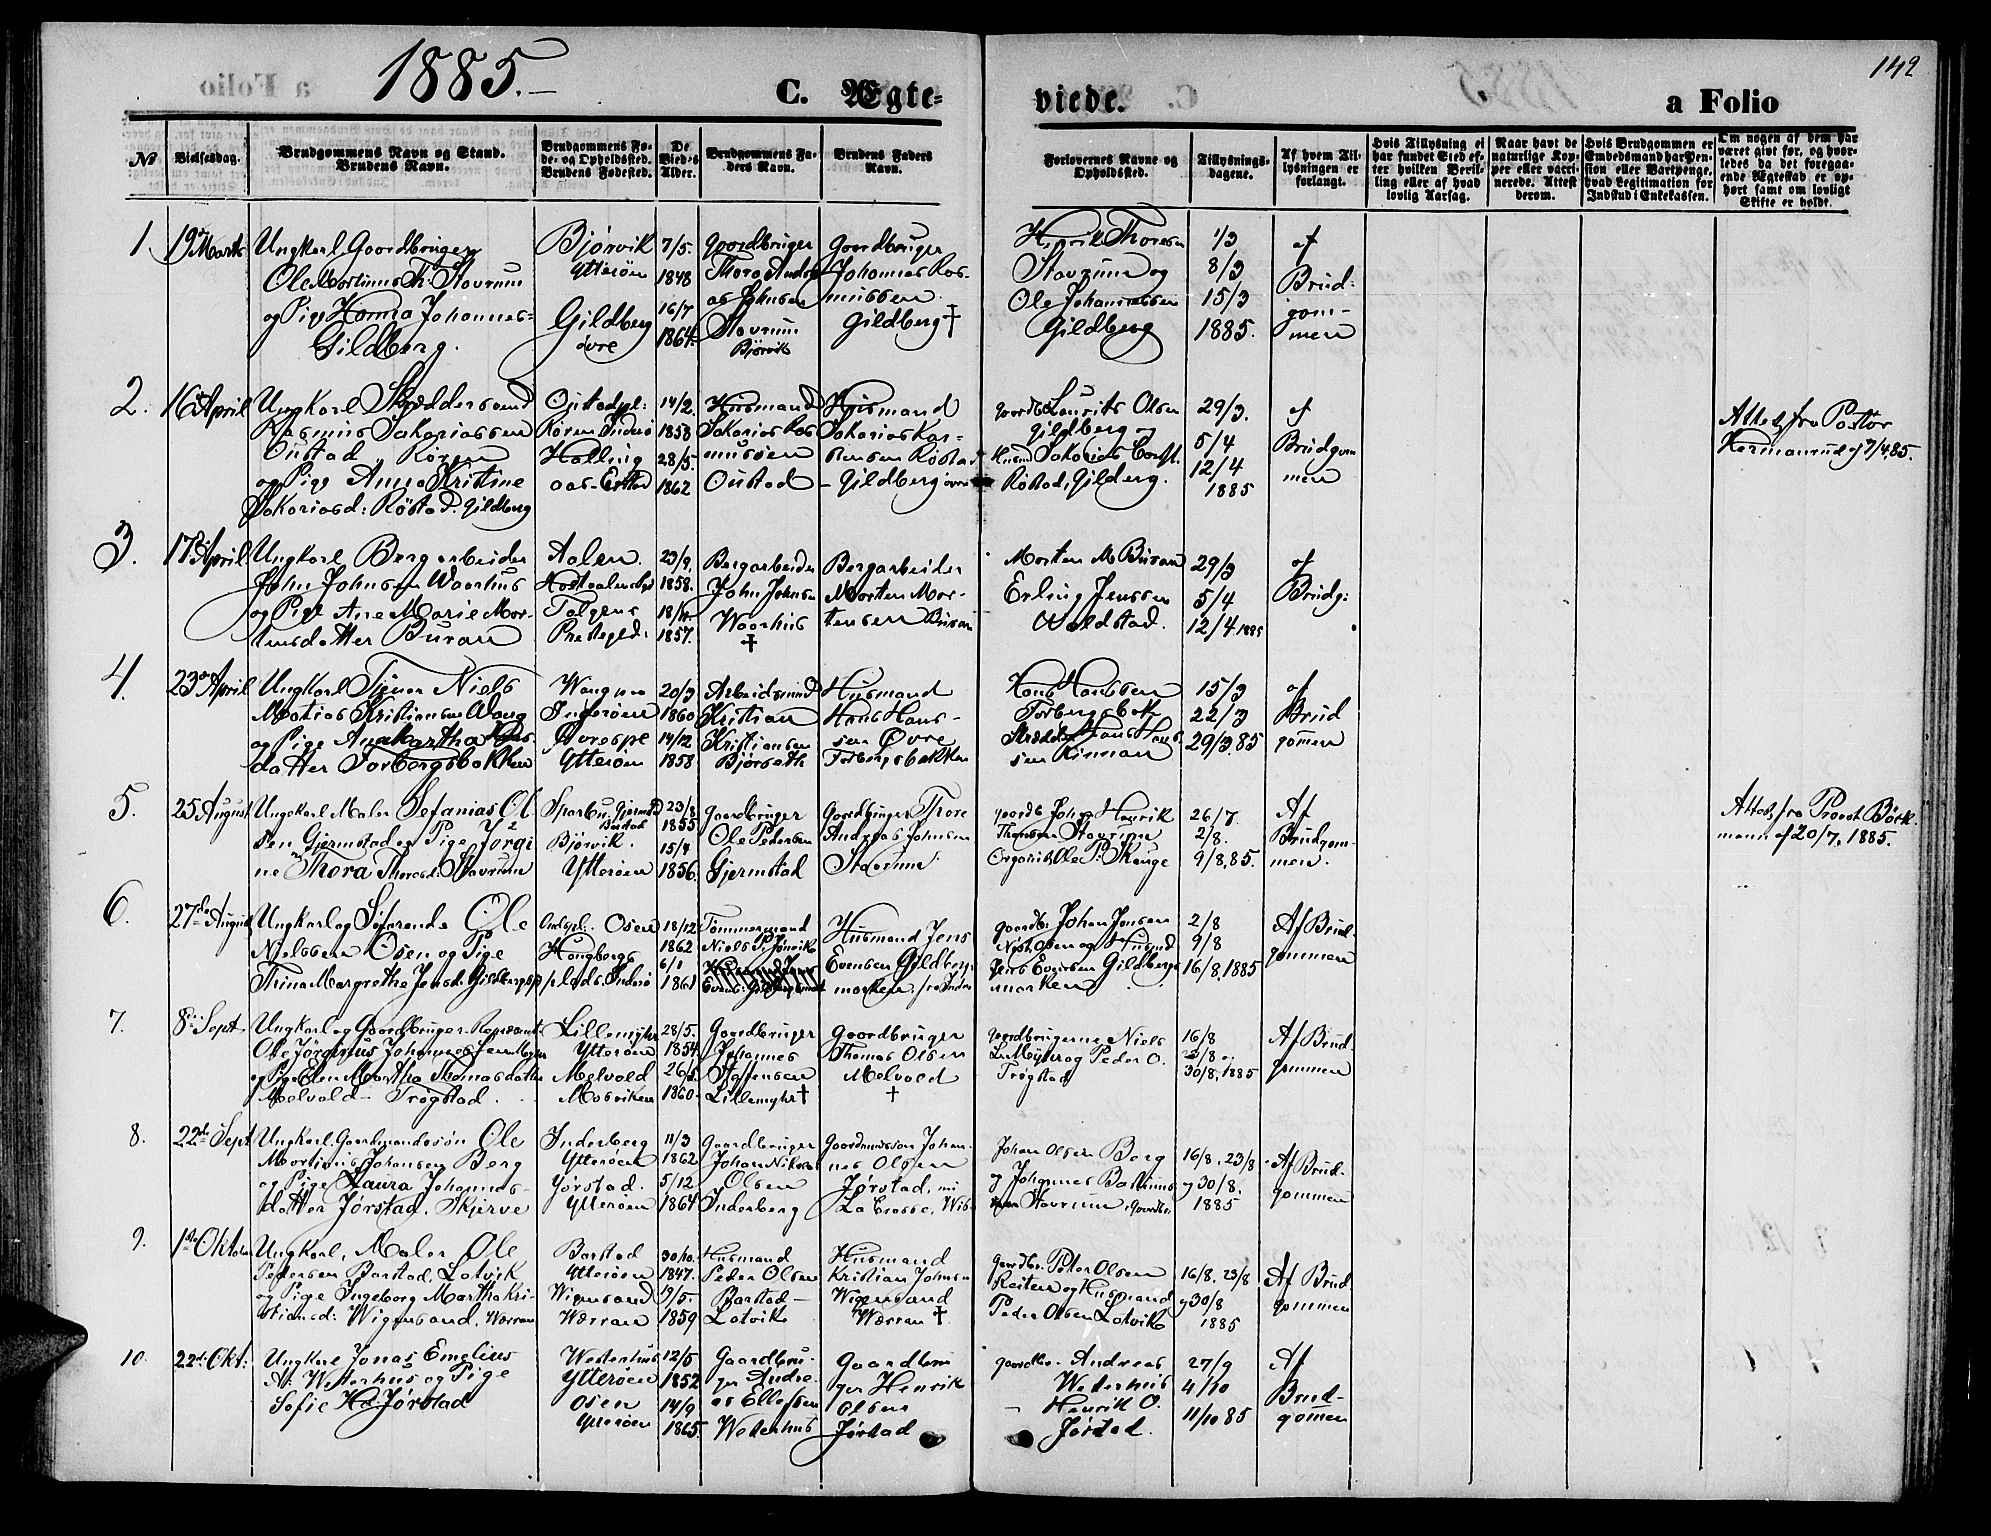 1885.
142
C. Ægte-
viede.
a Folio
No
Vielsesdag.
Brudgommens Navn og Stand.
Brudens Navn.
Brudgommens Fø-
de- og Opholdssted.
Brudens Fødested.
De
Vied-
Alder.
Brudgommens Fa-
ders Navn.
Brudens Faders
Navn.
Forlovernes Navne og
Opholdssted.
Tillysnings-
dagene.
Af hvem Til-
lysningen er
forlangt.
Hvis Tillysning ei
har fundet Sted ef-
ter hvilken Bevil-
ling eller af hvad
lovlig Aarsag.
Naar havt de
naturlige Kop-
per eller vacci-
nerede. Attest
derom.
Hvis Brudgommen er
Embedsmand har Pen-
sion eller Vartpenge,
hvad Legitimation for
Indskud i Enkekassen.
Om nogen af dem har
været givt før, og hvor-
ledes da det foregaa-
ende Ægteskab er op-
hørt samt om lovligt
Skifte er holdt.
1 19 Marts
Ungkarl Gaardbruger
Ole Martinus Th. Stavrum
og Pige Hanna Johannes-
Gildberg.
Bjørvik
Ytterøen
Gildberg
øvre
7/5.
1848
16/7
1864.
Gaardbruger
Thore Andre
as Johnsen
Stavrum
Bjørvik
Gaardbruger
Johannes Ras-
mussen
Gildberg †
Henrik Thoresen
Stavrum og
Ole Johannessen
Gildberg
1/3
8/3
15/3
1885.
af
Brud:
gom-
men
2. 16 April
Ungkarl Skræddersvend
Rasmus Sakariassen
Oustad, Koren
og Pige Anna Kristine
Sakariasd: Røstad: Gildberg
Oustadpl:
Koren Inderø
Holling
aas-Eistad
14/2.
1858
28/5.
1862
Husmand
Sakarias Ras
mussen
Oustad
Husmand
Sakarias Kar-
stensen Røstad
- Gildberg øvre
Gaardb. Laurits Olsen
Gildberg og
Husmd Sakarias Carst.
Røstad, Gilderg.
29/3.
5/4
12/4
1885
af
Brudgom
men
Attest fra Pastor
Hermanrud af 7/4 85.
3. 17 April
Ungkarl Bergarbeider
John Johnsen Waarhus
og Pige Ane Marie Mor-
tensdatter Buran
Aalen.
Holtaalen
Tolgens
Præstegld:
23/9.
1858.
18/11
1857.
Bergarbeider
John Johnsen
Waarhus
†
Bergarbeider
Morten Mor-
tensen Buran
Morten M Buran
Erling Jenssen
Woldstad.
29/3
5/4
12/4.1885
af
Brudg:
4. 23 April
Ungkarl Tjener Niels
Matias Kristiansen Wang
og Pige Anamartha Hans
datter Forbergsbakken
Wang
Inderøen
Øvrespl
Ytterøen
20/3
1860
14/12
1858
Arbeidsmand
Kristian
Kristiansen
Bjørseth
Husmand
Hans Hans-
sen Øvre
Forbergsbakken
Hans Hanssen
Forbergsbak
Skrædder Hans Hans
sen Rinnan
15/3
22/3
29/3.85
af
Brud
gomen
5. 25 August
Ungekarl Maler Sefanias Ol
sen Gjermstad og Pige Jørgi
ne Thora Thoresd: Stavrum
Sparbu, Gjermstad
Bjørvik.
Ytterøen
23/8
1855
15/4
1856.
Gaardbruger
Ole Pedersen
Gjermstad
Gaardbruger Thore
Andreas Johnsen
Stavrum
Gaardb Johan Henrik
Thoresen Stavrum
Organist Ole P. Skauge
26/7.
2/8.
9/8.85.
Af
Brudgom-
men.
Attest fra Provst Böck-
mann af 20/7. 1885.
6. 27de August
Ungkarl og Søfarende Ole
Nielssen Osen og Pige
Trina Margrethe Jensd: Gildbergspl
Osen
Haugbergs
plads, Inderø
18/12
1862
6/1
1861
Tømmermand
Niels P. Jønvik
Husmand Jens
Evensen Gildberg-
marken, fra Inderø
Gaardb. Johan Jensen
Osen og Husmd
Jens Evensen Gildberg-
marken
2/8
9/8
16/8.1885
Af Brud-
gommen
7. 8de Sept
Ungkarl og Gaardbruger Repræsent
Ole Jørginus Johannessen Myhr
og Pige Elen Martha Thomasdatter
Melvold - Trøgstad.
Lillemyhr
Ytterøen
Melvold
Mosviken
28/5.
1854
26/5.
1860.
Gaardbruger
Johannes
Steffensen
Lillemyhr †
Gaardbruger
Thomas Olsen
Melvold
†
Gaardbrugerne Niels
L. Myhr og Peder O.
Trøgstad
16/8
23/8 og
30/8.1885
Af Brud-
gommen
8. 22de Sept
Ungkarl, Gaardmandssøn Ole
Martinus Johansen Berg
og Pige Laura Johannes-
datter Jørstad, Skjerve
Inderberg
Ytterøen
Jørstad.
Ytterøen
11/3
1862
5/12
1864
Gaardbruger
Johan Nikolai
Olsen
Inderberg
Gaardmandssøn Johan-
nes Olsen
Jørstad, nu
La Crosse, Wis
Johan Olsen Berg
og Johannes
Stavrum, Gaardb.
16/8, 23/8
og 30/8.
1885
Af Brud-
gommen
9. 1ste Oktober
Ungkarl, Maler Ole
Petersen Barstad, Lotvik
og Pige Ingeborg Martha Kri-
stiansd: Wigensand, Werran
Barstad
Ytterøen
Wigensand
Werran
30/10.
1847.
19/5.
1859
Husmand
Peder Olsen
Barstad -
Lotvik
Husmand
Kristian Johnsen
Wigensand
Werran †
Gaardbr. Peter Olsen
Reiten og Husmand
Peder Olsen Lotvik
16/8, 23/8
og 30/8
1885
Af Brud-
gommen
10. 22de Okt:
Ungkarl Jonas Emelius
A: Westerhus og Pige
Sofie Hd: Jørstad
Westerhus
Ytterøen
Osen
Ytterøen
12/5
1852
14/9
1865.
Gaardbru-
ger Andre-
as Ellefsen
Westerhus
Gaardbru
ger Henrik
Olsen
Jørstad
Gaardbr. Andreas
Westerhus
- Henrik O.
Jørstad.
27/9
4/10
11/10 85
Af
Brud-
gomen